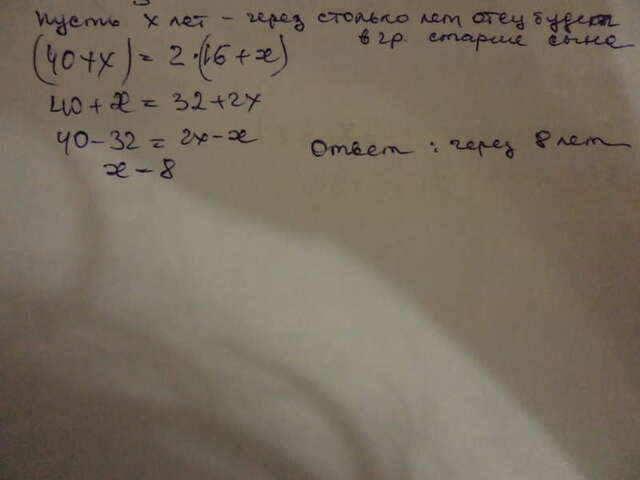 Пусть х лет - через столько лет отец будет
в 2р. старше сына
(40+х) = 2·(16+х)
40 + х = 32 + 2х
40 - 32 = 2х - х
Ответ : через 8 лет
х - 8